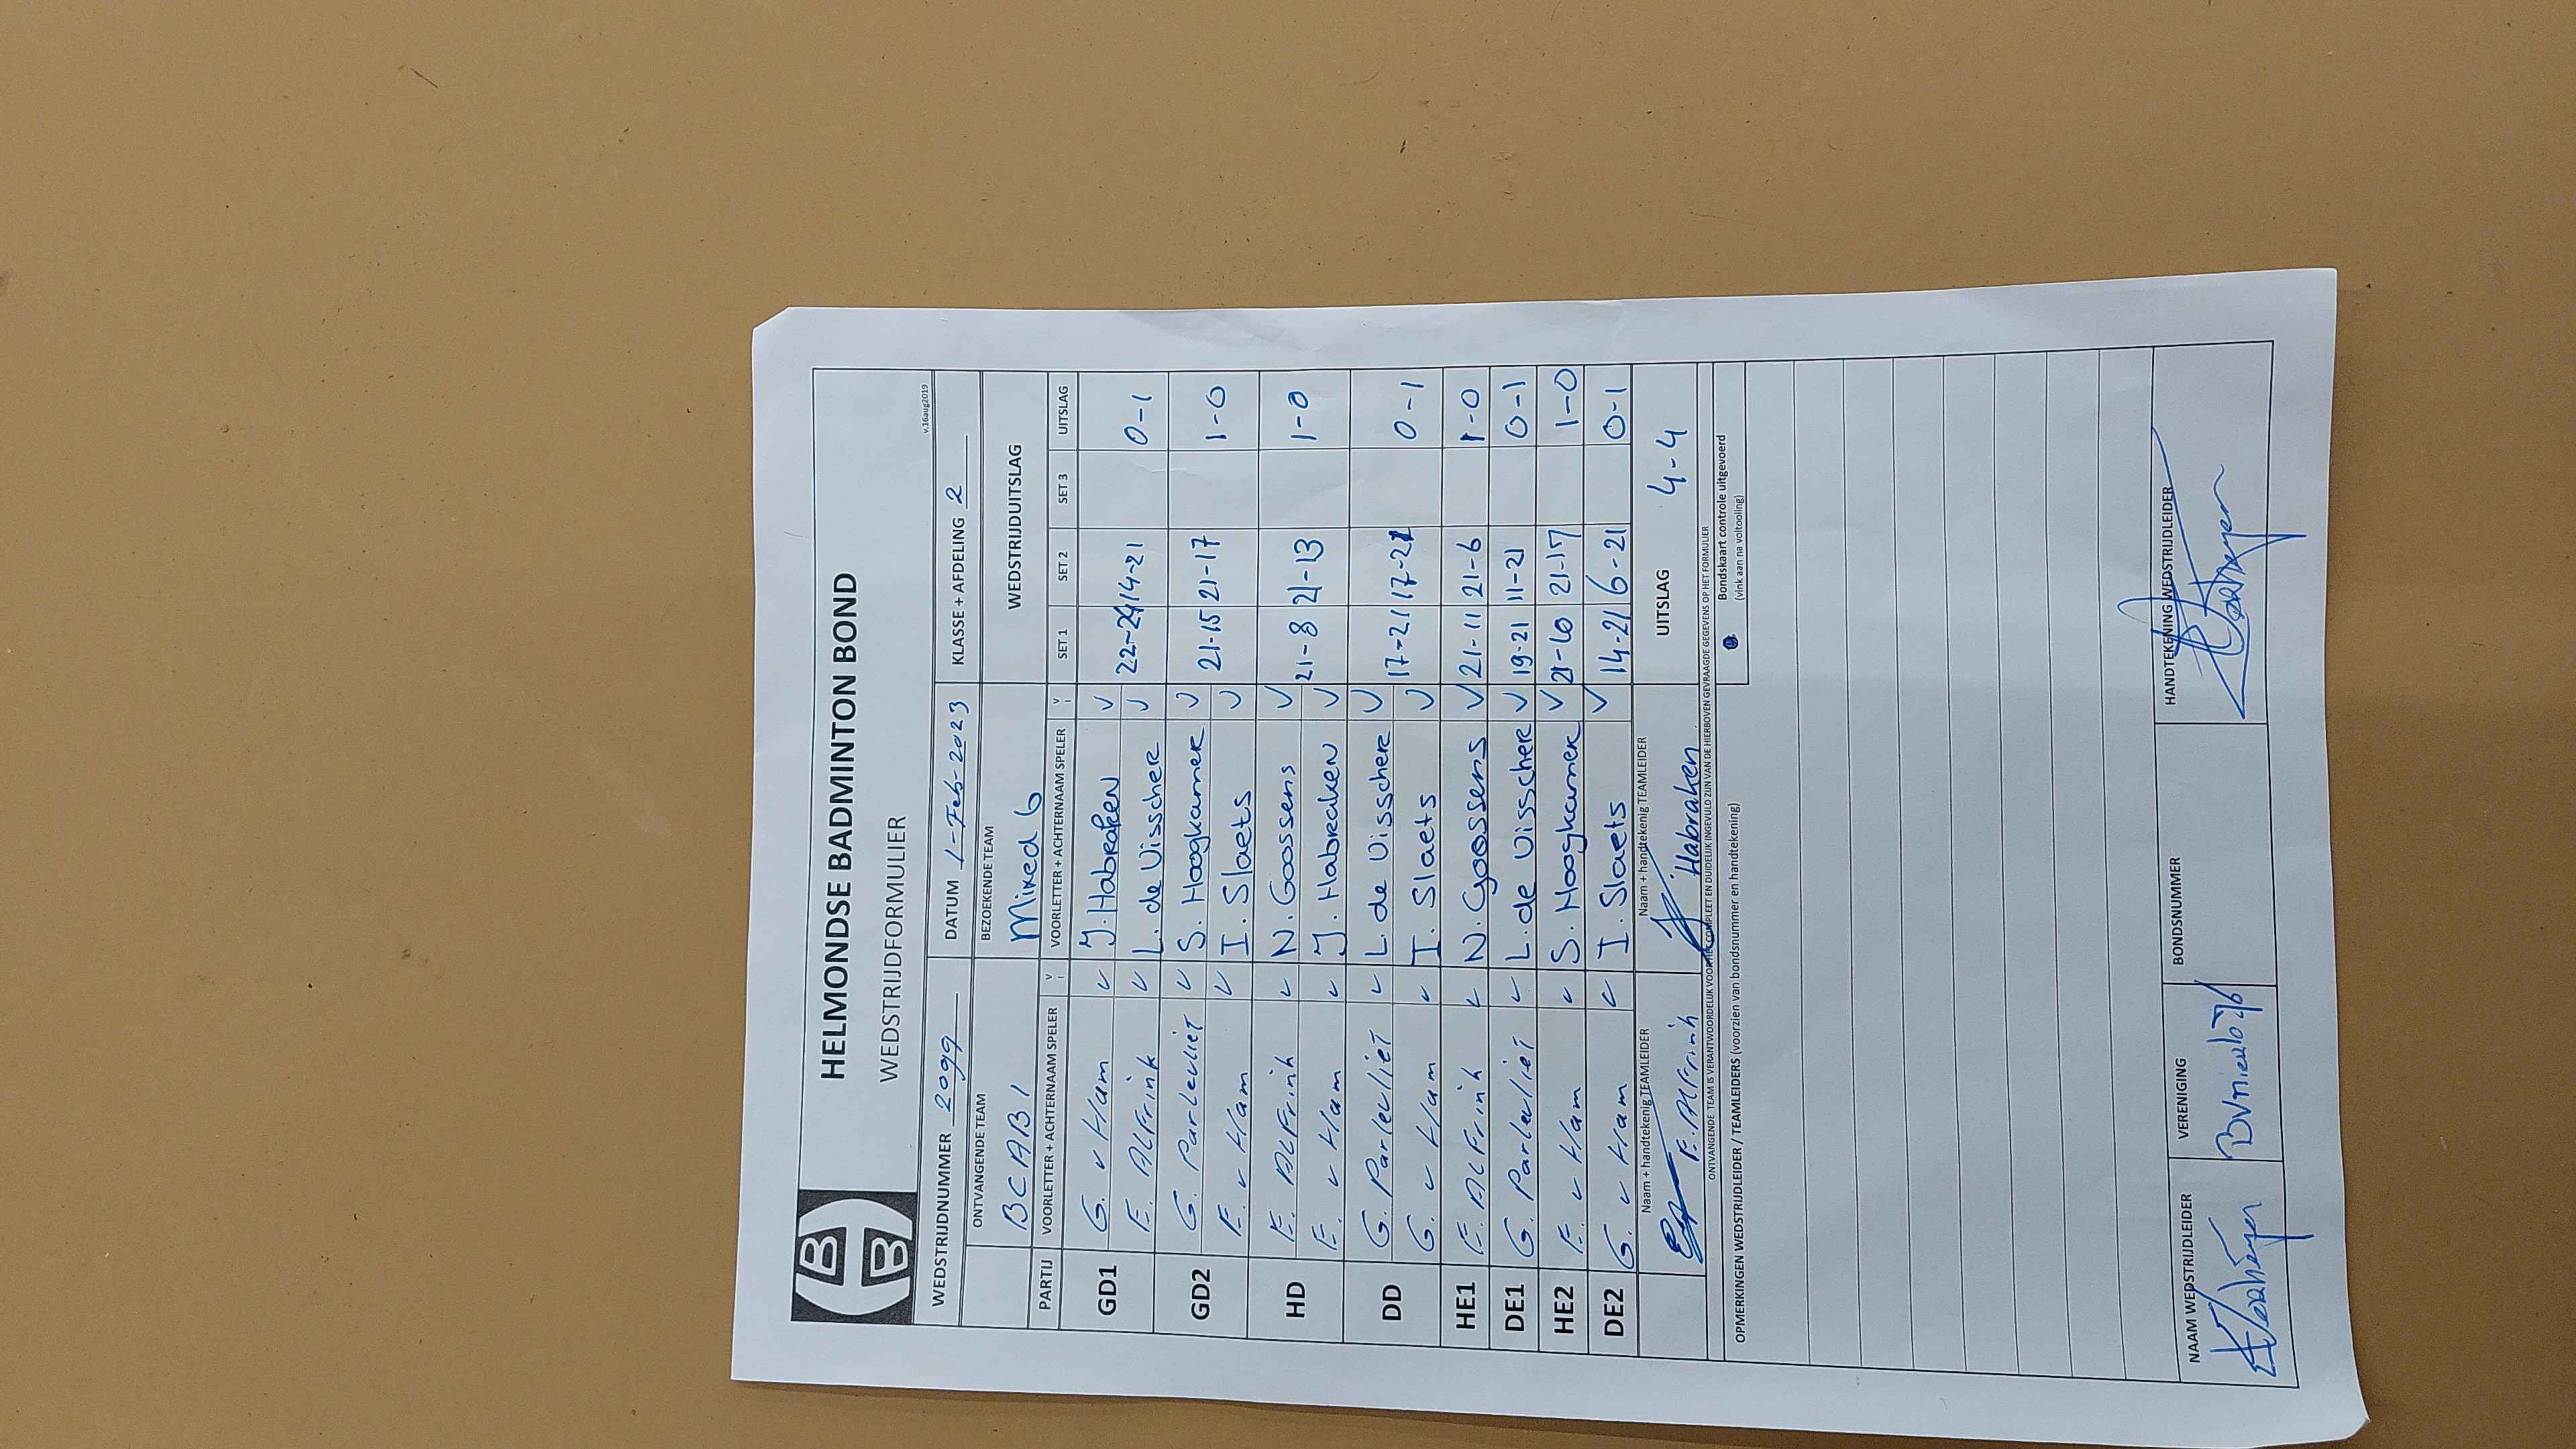 HELMONDSE BADMINTON BOND
WEDSTRIJDFORMULIER
v.16aug2019
WEDSTRIJDNUMMER 2099 DATUM 1-Feb-2023 KLASSE + AFDELING 2
ONTVANGENDE TEAM BEZOEKENDE TEAM WEDSTRIJDUITSLAG
BCAB 1 Mixed 6
PARTIJ VOORLETTER + ACHTERNAAM SPELER V VOORLETTER + ACHTERNAAM SPELER V SET 1 SET 2 SET 3 UITSLAG
GD1 G. v Ham v J. Habraken v
E. Alfrink v L. de Visscher v 22-24 14-21 0-1
GD2 G. Parlevliet v S. Hoogkamer v
E. v Ham v I. Slaets v 21-15 21-17 1-0
HD E. Alfrink v N. Goossens v 21-8 21-13 1-0
E. v Ham v J. Habraken v
DD G. Parlevliet v L. de Visscher v
G. v Ham v I. Slaets v 17-21 17-21 0-1
HE1 E. Alfrink v N. Goossens v 21-11 21-6 1-0
DE1 G. Parlevliet v L. de Visscher v 19-21 11-21 0-1
HE2 E. v Ham v S. Hoogkamer v 21-10 21-17 1-0
DE2 G. v Ham v I. Slaets v 14-21 6-21 0-1
Naam + handtekenig TEAMLEIDER Naam + handtekenig TEAMLEIDER UITSLAG 4-4
E. Alfrink J. Habraken
ONTVANGENDE TEAM IS VERANTWOORDELIJK VOOR HET COMPLEET EN DUIDELIJK INGEVULD ZIJN VAN DE HIERBOVEN GEVRAAGDE GEGEVENS OP HET FORMULIER
Bondskaart controle uitgevoerd
(vink aan na voltooiing)
OPMERKINGEN WEDSTRIJDLEIDER / TEAMLEIDERS (voorzien van bondsnummer en handtekening)
NAAM WEDSTRIJDLEIDER VERENIGING BONDSNUMMER HANDTEKENING WEDSTRIJDLEIDER